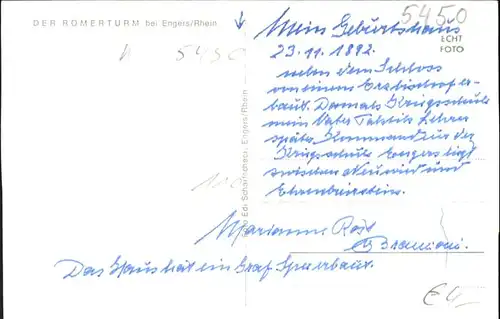 DER RÖMERTURM bei Engers/Rhein
5450
ECHT
FOTO
5450
Mein Geburtshaus
23.11.1892.
neben dem Schloss
von einem Erzbischof er-
baut. Damals Kriegsschule
mein Vater Taktik Lehrer
später Kommandeur der
Kriegsschule Engers liegt
zwischen Neuwied und
Ehrenbreitstein.
Marianne Rost
Das Haus hat ein Graf erbaut.
Engers/Rhein
€ 4,-